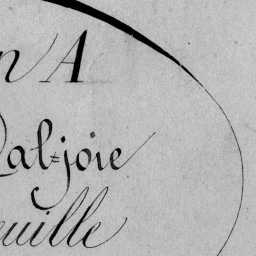 n A
al=joie
euille